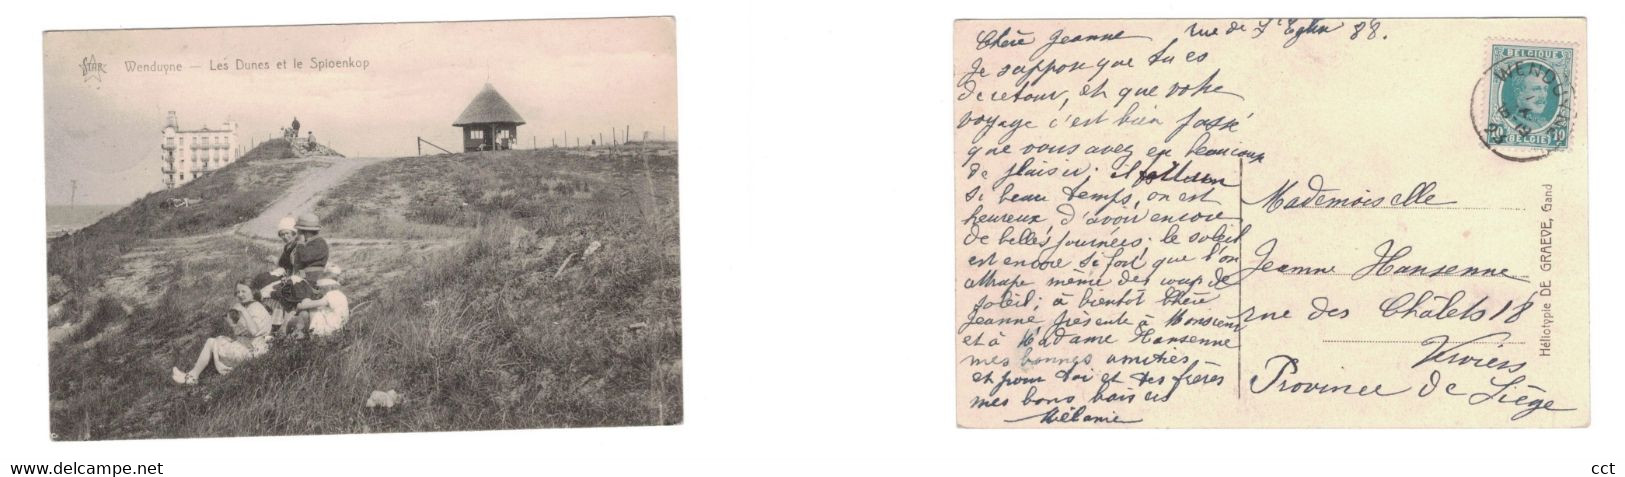 STAR
Wenduyne — Les Dunes et le Spioenkop
rue de l'Eglise 88.
Chère Jeanne
Je suppose que tu es
de retour, et que votre
voyage c'est bien passé
que vous avez eu beaucoup
de plaisir; il fait
si beau temps, on est
heureux d'avoir encore
de belles journées; le soleil
est encore si fort que l'on
attrape même des coup de
soleil; à bientôt Chère
Jeanne présente à Monsieur
et à Madame Hansenne
mes bonnes amitiés
et pour toi et tes frères
mes bons baisers
Mélanie
BELGIQUE
10 10
BELGIË
WENDUYNE
Mademoiselle
Jeanne Hansenne
rue des Châlets 18
Verviers
Province de Liège
Héliotypie DE GRAEVE, Gand
www.delcampe.net
cct